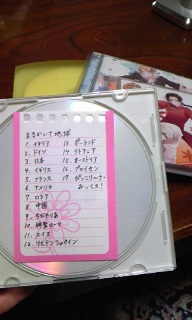 まるかいて地球
1. イタリア
2. ドイツ
3. 日本
4. イギリス
5. フランス
6. アメリカ
7. ロシア
8. 中国
9. ちびたりあ
10. 神聖ローマ
11. スイス
12. リヒテンシュタイン
13. ポーランド
14. リトアニア
15. オーストリア
16. プロイセン
17.